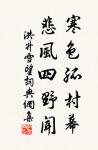 寒色孤村暮
悲風四野聞
洪升雪望詞典網集